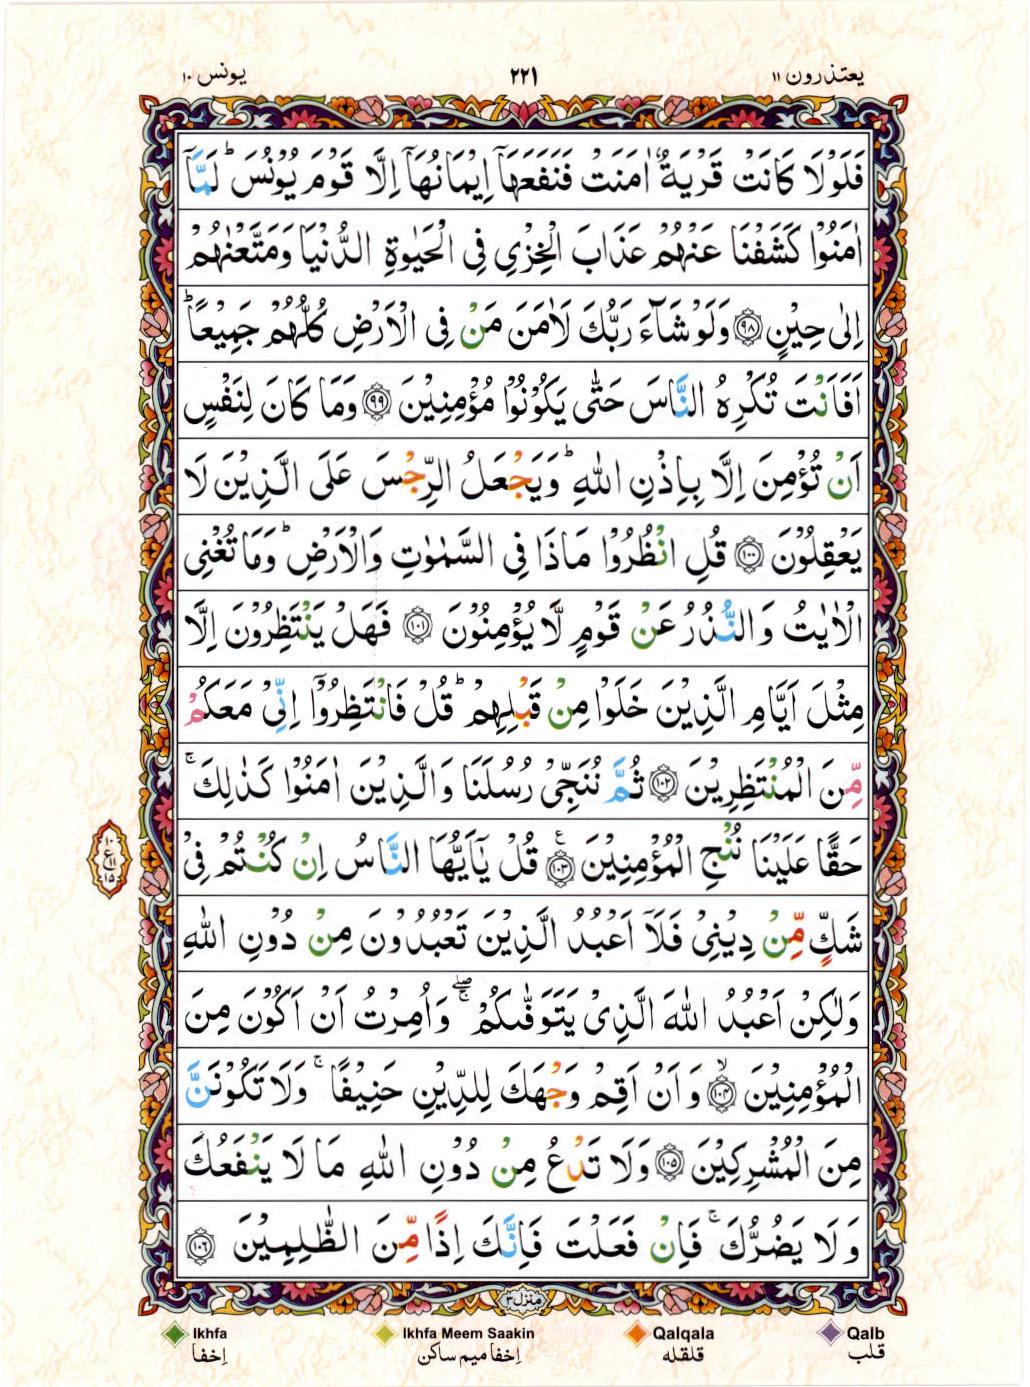 يعتذرون ١١ ٢٢١ يونس ١٠
فَلَوْلَا كَانَتْ قَرْيَةٌ اٰمَنَتْ فَنَفَعَهَاۤ اِيْمَانُهَاۤ اِلَّا قَوْمَ يُوْنُسَ ؕ لَمَّاۤ
اٰمَنُوْا كَشَفْنَا عَنْهُمْ عَذَابَ الْخِزْيِ فِى الْحَيٰوةِ الدُّنْيَا وَمَتَّعْنٰهُمْ
اِلٰى حِيْنٍ ﴿٩٨﴾ وَلَوْ شَآءَ رَبُّكَ لَاٰمَنَ مَنْ فِى الْاَرْضِ كُلُّهُمْ جَمِيْعًا ؕ
اَفَاَنْتَ تُكْرِهُ النَّاسَ حَتّٰى يَكُوْنُوْا مُؤْمِنِيْنَ ﴿٩٩﴾ وَمَا كَانَ لِنَفْسٍ
اَنْ تُؤْمِنَ اِلَّا بِاِذْنِ اللّٰهِ ؕ وَيَجْعَلُ الرِّجْسَ عَلَى الَّذِيْنَ لَا
يَعْقِلُوْنَ ﴿١٠٠﴾ قُلِ انْظُرُوْا مَاذَا فِى السَّمٰوٰتِ وَالْاَرْضِ ؕ وَمَا تُغْنِى
الْاٰيٰتُ وَالنُّذُرُ عَنْ قَوْمٍ لَّا يُؤْمِنُوْنَ ﴿١٠١﴾ فَهَلْ يَنْتَظِرُوْنَ اِلَّا
مِثْلَ اَيَّامِ الَّذِيْنَ خَلَوْا مِنْ قَبْلِهِمْ ؕ قُلْ فَانْتَظِرُوْۤا اِنِّىْ مَعَكُمْ
مِّنَ الْمُنْتَظِرِيْنَ ﴿١٠٢﴾ ثُمَّ نُنَجِّىْ رُسُلَنَا وَالَّذِيْنَ اٰمَنُوْا كَذٰلِكَ ۚ
حَقًّا عَلَيْنَا نُنْجِ الْمُؤْمِنِيْنَ ﴿١٠٣﴾ ع قُلْ يٰۤاَيُّهَا النَّاسُ اِنْ كُنْتُمْ فِىْ
١٠ ع ١١ ١٥
شَكٍّ مِّنْ دِيْنِىْ فَلَاۤ اَعْبُدُ الَّذِيْنَ تَعْبُدُوْنَ مِنْ دُوْنِ اللّٰهِ
وَلٰكِنْ اَعْبُدُ اللّٰهَ الَّذِىْ يَتَوَفّٰٮكُمْ ۖۚ وَاُمِرْتُ اَنْ اَكُوْنَ مِنَ
الْمُؤْمِنِيْنَ ﴿١٠٤﴾ ۙ وَاَنْ اَقِمْ وَجْهَكَ لِلدِّيْنِ حَنِيْفًا ۚ وَلَا تَكُوْنَنَّ
مِنَ الْمُشْرِكِيْنَ ﴿١٠٥﴾ وَلَا تَدْعُ مِنْ دُوْنِ اللّٰهِ مَا لَا يَنْفَعُكَ
وَلَا يَضُرُّكَ ۚ فَاِنْ فَعَلْتَ فَاِنَّكَ اِذًا مِّنَ الظّٰلِمِيْنَ ﴿١٠٦﴾
منزل ٣
Ikhfa Ikhfa Meem Saakin Qalqala Qalb
إخفا إخفا ميم ساكن قلقله قلب